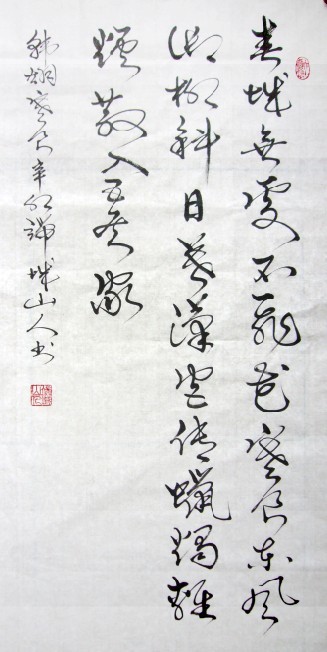 春城無處不飛花寒食東風
御柳斜日暮漢宮傳蠟燭輕
煙散入五侯家
韓翃寒食辛卯城山人书